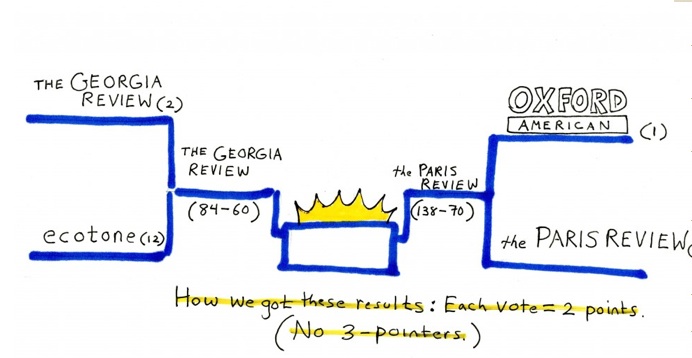 THE GEORGIA
REVIEW (2)
THE GEORGIA
REVIEW
(84-60)
ecotone (12)
OXFORD
AMERICAN
(1)
the PARIS
REVIEW
(138-70)
the PARIS REVIEW
How we got these results: Each vote = 2 points.
(No 3-pointers.)